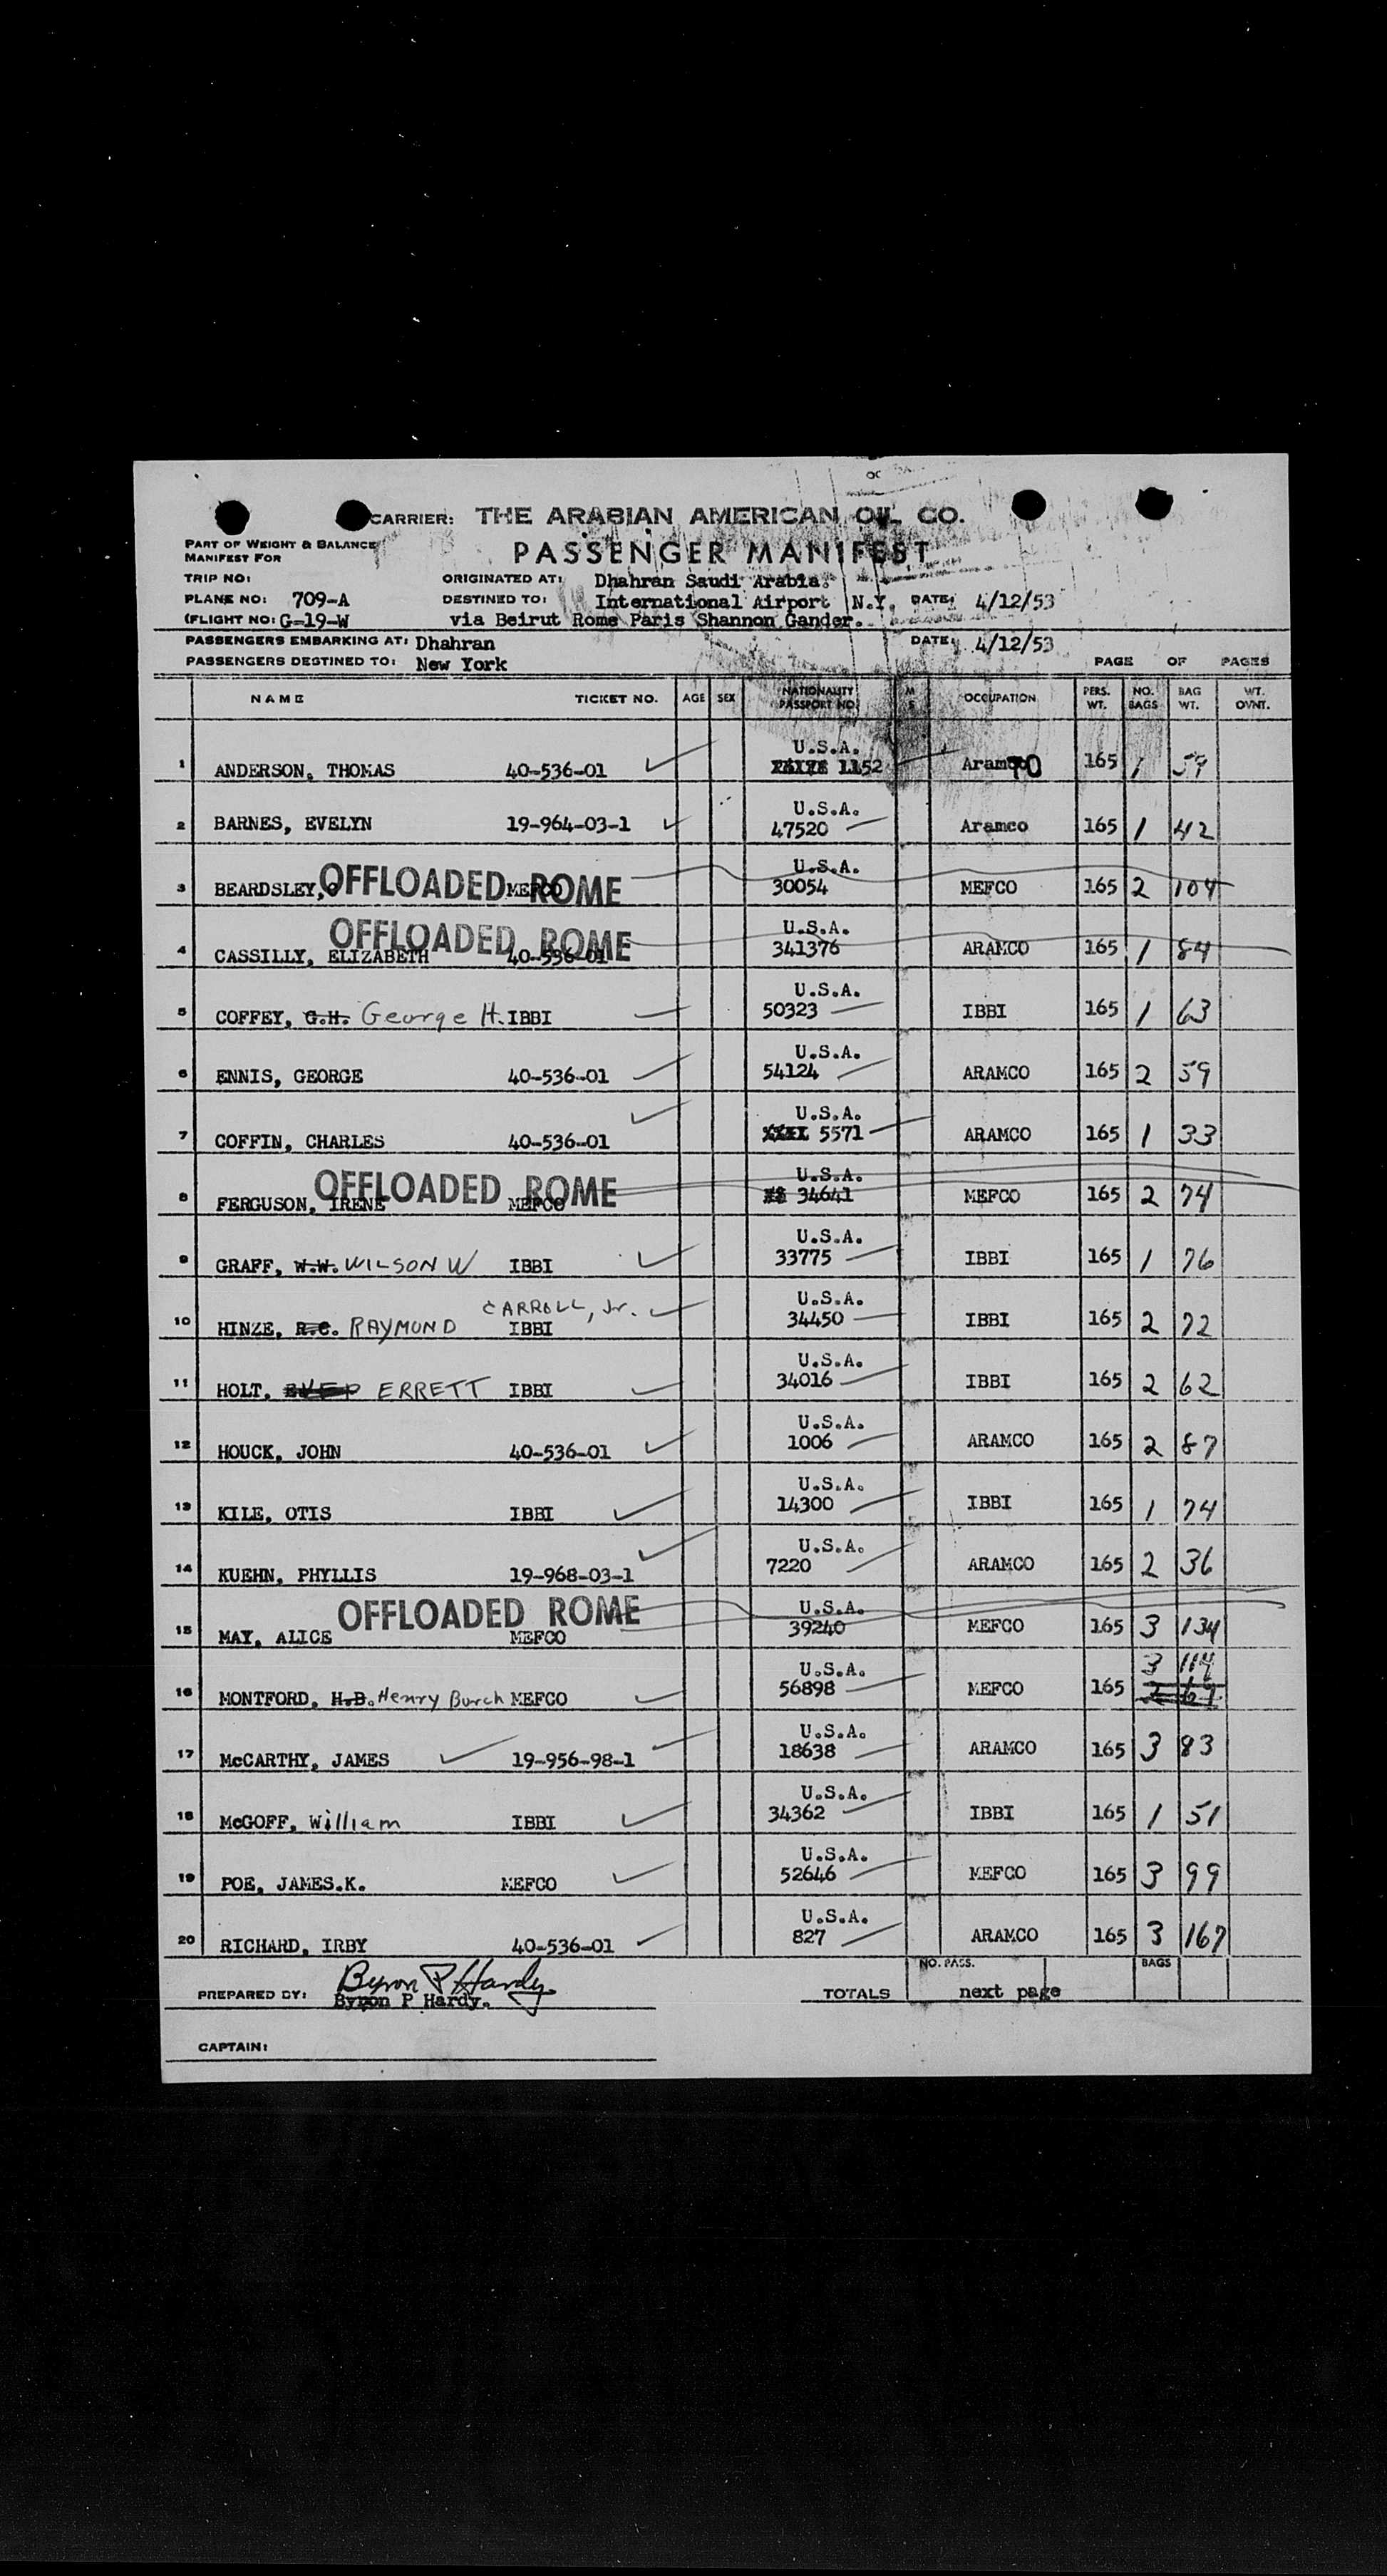 CARRIER: THE ARABIAN AMERICAN OIL CO.
PART OF WEIGHT & BALANCE
MANIFEST FOR
PASSENGER MANIFEST
TRIP NO: ORIGINATED AT: Dhahran Saudi Arabia.
PLANE NO: 709-A DESTINED TO: International Airport N.Y. DATE: 4/12/53
(FLIGHT NO: G-19-W via Beirut Rome Paris Shannon Gander.
PASSENGERS EMBARKING AT: Dhahran DATE: 4/12/53
PASSENGERS DESTINED TO: New York PAGE OF PAGES
NAME TICKET NO. AGE SEX NATIONALITY PASSPORT NO. M S OCCUPATION PERS. WT. NO. BAGS BAG WT. WT. OVNT.
U.S.A.
1 ANDERSON, THOMAS 40-536-01 1152 Aramco 165 1 59
U.S.A.
2 BARNES, EVELYN 19-964-03-1 47520 Aramco 165 1 42
U.S.A.
3 BEARDSLEY, OFFLOADED MEFCO ROME 30054 MEFCO 165 2 104
OFFLOADED ROME U.S.A.
4 CASSILLY, ELIZABETH 40-536-01 341376 ARAMCO 165 1 84
U.S.A.
5 COFFEY, G.H. George H. IBBI 50323 IBBI 165 1 63
U.S.A.
6 ENNIS, GEORGE 40-536-01 54124 ARAMCO 165 2 59
U.S.A.
7 COFFIN, CHARLES 40-536-01 5571 ARAMCO 165 1 33
OFFLOADED ROME U.S.A.
8 FERGUSON, IRENE MEFCO 34641 MEFCO 165 2 74
U.S.A.
9 GRAFF, W.W. WILSON W IBBI 33775 IBBI 165 1 76
CARROLL, Jr. U.S.A.
10 HINZE, R.C. RAYMOND IBBI 34450 IBBI 165 2 72
U.S.A.
11 HOLT, ERRETT IBBI 34016 IBBI 165 2 62
U.S.A.
12 HOUCK, JOHN 40-536-01 1006 ARAMCO 165 2 87
U.S.A.
13 KILE, OTIS IBBI 14300 IBBI 165 1 74
U.S.A.
14 KUEHN, PHYLLIS 19-968-03-1 7220 ARAMCO 165 2 36
OFFLOADED ROME U.S.A.
15 MAY, ALICE MEFCO 39240 MEFCO 165 3 134
U.S.A. 3 114
16 MONTFORD, H.B. Henry Burch MEFCO 56898 MEFCO 165
U.S.A.
17 McCARTHY, JAMES 19-956-98-1 18638 ARAMCO 165 3 83
U.S.A.
18 McGOFF, William IBBI 34362 IBBI 165 1 51
U.S.A.
19 POE, JAMES.K. MEFCO 52646 MEFCO 165 3 99
U.S.A.
20 RICHARD, IRBY 40-536-01 827 ARAMCO 165 3 167
NO. PASS. BAGS
Byron P Hardy
PREPARED BY: Byron P Hardy. TOTALS next page
CAPTAIN: